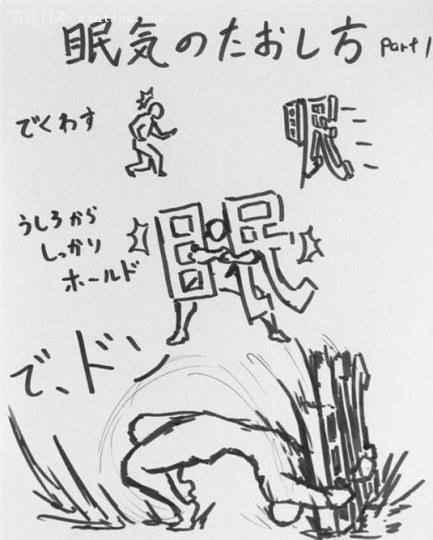 眠気のたおし方 Part 1
でくわす
眠
うしろから
しっかり
ホールド
眠
で、ドン